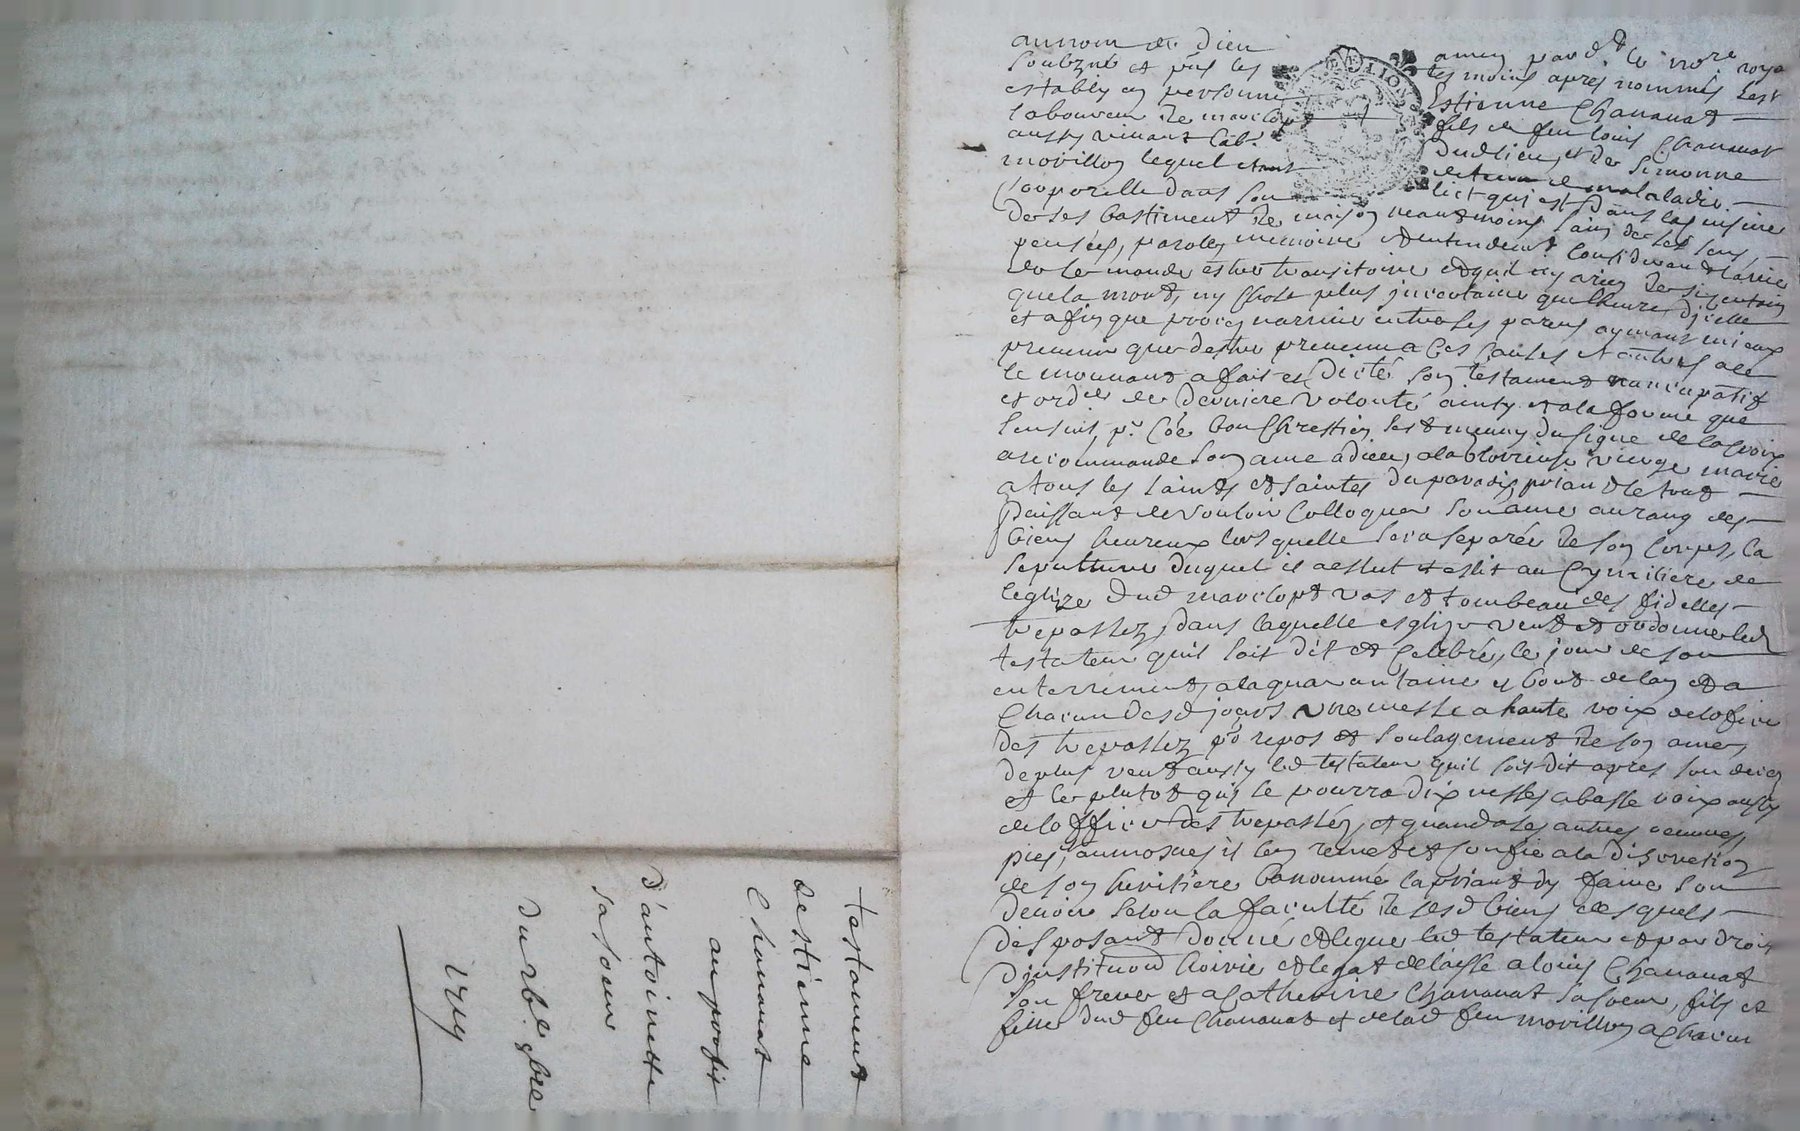 au nom de Dieu amen par dt le nore royal
soubzné et pns les tesmoins apres nommés sest
estably en personne Estienne Chananat
laboureur de fils de feu Louis Chananat
aussy vivant lab. dudt lieu, et de Simonne
Movillon lequel estant detenu de malaladie
corporelle dans son lict qui est dans las
de ses bastiment de maison neantmoins sain de ses sens,
pensées, parolles memoire et entendement considerant
le monde estre transitoire et quil ny a rien de si certain
que la mort, ny chose plus incertaine que lheure dicelle
et afin que entre ses parens aymant mieux
prevenir que destre prevenu a ces causes et autres a ce
le mouvant a fait et dicté son testament nuncupatif
et ordce de derniere volonté ainsy et a la forme que
sensuit pr. cõe bon chrestien sest muny du signe de la croix
a recommande son ame a dieu, a la glorieuse vierge marie
a tous les saints et saintes du paradis, priant le tout
puissant de vouloir colloquer son ame au rang des
biens heureux lors quelle sera separée de son corps, la
sepulture duquel il a eslut et eslit au cymitiere de
leglize dud marclopt vas et tombeau des fidelles
trepassez, dans laquelle esglize veut et ordonne led
testateur quil soit dit et celebré, le jour de son
enterrement, a la quarantaine et bout de lan et a
chacun desd jours une messe a haute voix de lofice
des trepassez pr repos et soulagement de son ame,
de plus veut aussy led testateur quil soit dit apres son deces
et le plutot quil se pourra dix messes a basse voix aussy
de loffice des trepassés, et quand a ses autres oeuvres
pies, aumosnes il les remet et confie a la discretion
de son heritiere bas nommé la priant dy faire son
devoir selon la faculté de sesd biens desquels
disposant donne et legue led testateur et par droit
dinstituõn hoirie et legat delaisse a louis Chananat
son frere et a Catherine Chananat sa soeur, fils et
fille dud feu Chananat et de lad feu movillon a chacun
testament
destienne
Chananat
au profit
d'antoinette
sa soeur
du 9bre